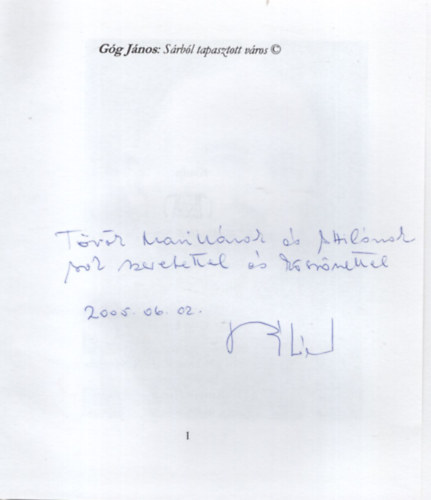 Góg János: Sárból tapasztott város ©
Török Mariknának és Attilának
sok szeretettel és köszönettel
2005. 06. 02.
1